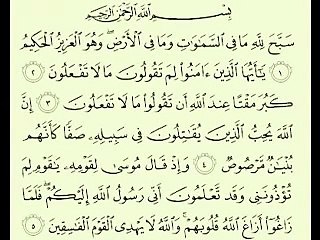 بِسْمِ اللَّهِ الرَّحْمَٰنِ الرَّحِيمِ
سَبَّحَ لِلَّهِ مَا فِي السَّمَٰوَٰتِ وَمَا فِي الْأَرْضِ ۖ وَهُوَ الْعَزِيزُ الْحَكِيمُ
١ يَٰٓأَيُّهَا الَّذِينَ ءَامَنُوا لِمَ تَقُولُونَ مَا لَا تَفْعَلُونَ ٢
كَبُرَ مَقْتًا عِندَ اللَّهِ أَن تَقُولُوا مَا لَا تَفْعَلُونَ ٣ إِنَّ
اللَّهَ يُحِبُّ الَّذِينَ يُقَٰتِلُونَ فِي سَبِيلِهِ صَفًّا كَأَنَّهُم
بُنْيَٰنٌ مَّرْصُوصٌ ٤ وَإِذْ قَالَ مُوسَىٰ لِقَوْمِهِ يَٰقَوْمِ لِمَ
تُؤْذُونَنِي وَقَد تَّعْلَمُونَ أَنِّي رَسُولُ اللَّهِ إِلَيْكُمْ ۖ فَلَمَّا
زَاغُوا أَزَاغَ اللَّهُ قُلُوبَهُمْ ۚ وَاللَّهُ لَا يَهْدِي الْقَوْمَ الْفَٰسِقِينَ ٥